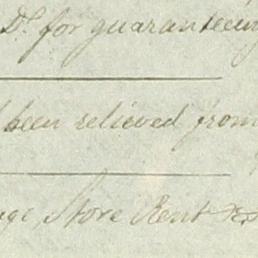 Do. for guaranteeing
been relieved from
Store Rent &c